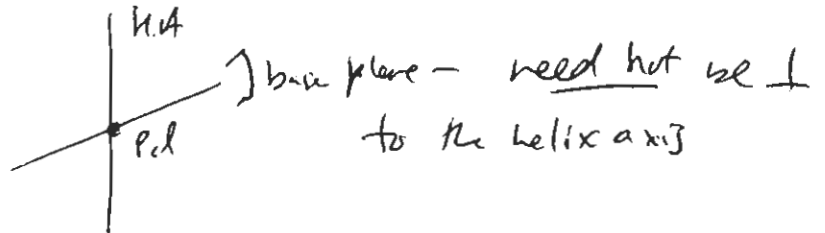 H.A
) base plane - need not be ⊥
P,d
to the helix axis